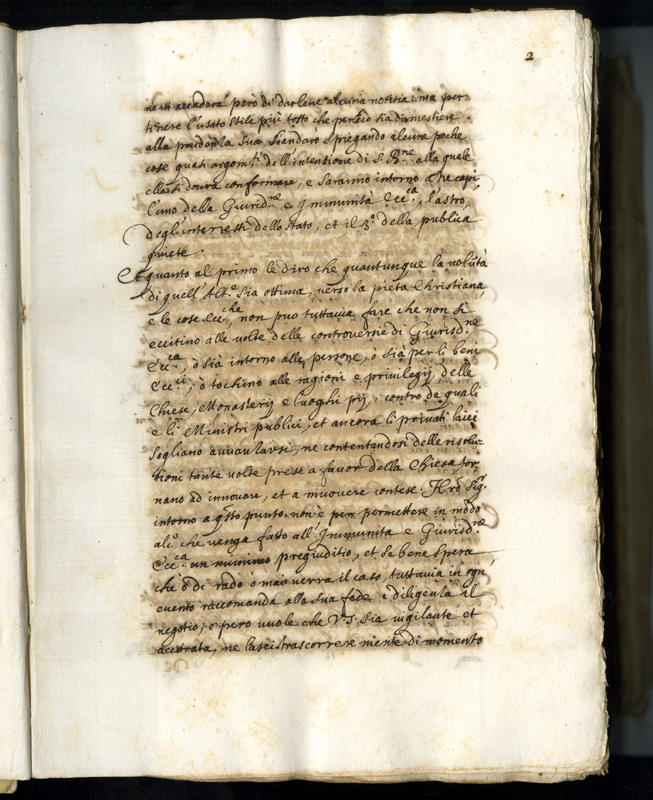 2
accaderà però di darlene alcuna notitia: ma per
tenere l'usato stile più tosto che perche sia di mestiere
alla prudenza sua s'andarò spiegando alcune poche
cose quasi argom.ti dell'intensione di S. B.ne alla quale
ella si dovrà conformare, e saranno intorno a tre capi,
l'uno della Giurid.ne e Jmmunità Ecc.ca, l'altro,
degl'interessi dello stato, et il 3.° della publica
quiete.
Et quanto al primo le dirò che quantunque la volūtà
di quell'Alt.e sia ottima, verso la pieta Christiana,
e le cose Ecc.che, non può tuttavia fare che non si
eccitino alle volte delle controversie di Giurisd.ne
Ecc.ca, ò sia intorno alle persone, ò sia per li beni
Ecc.ci, ò tochino alle ragioni e privilegij delle
Chiese, Monasterij e luoghi pij: contro de quali
e li Ministri publici, et ancora li privati laici
sogliano avventarsi, ne contentandosi delle risolu-
tioni tante volte prese a favor della Chiesa tor-
nano ad innovare, et a muovere contese. N.ro Sig.re
intorno a q.sto punto non è per permettere in modo
alc.° che venga fatto all'Jmmunita e Giurisd.ne
Ecc.ca un minimo pregiuditio, et se bene spera
che ò di rado o mai verrà il caso, tuttavia in ogni
evento raccomanda alla sua fede e diligenza il
negotio; e però vuole che V.S. sia vigilante et
accurata, ne lasci trascorrere niente di momento